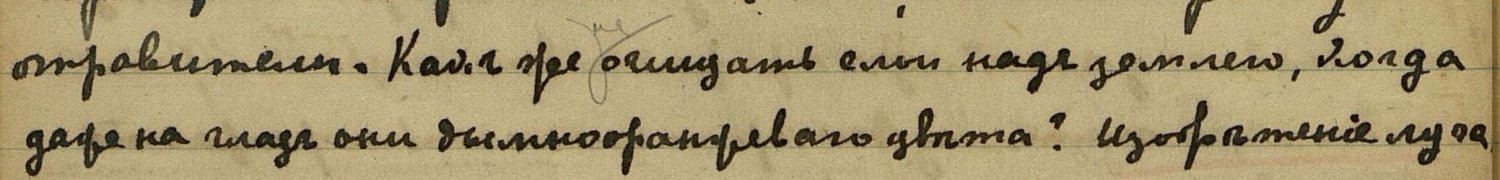 отравители. Какъ же не очищать слои надъ землею, когда
даже на глазъ они дымнооранжеваго цвѣта? Изобрѣтеніе луча